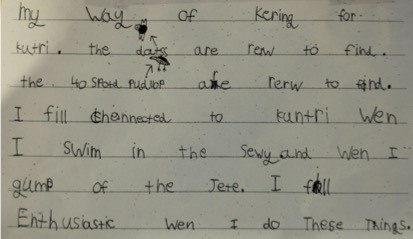 my way of Kering for
kutri. the dats are rerw to find.
the 40 SPotd PudloP are rerw to find.
I fill chennected to kuntri wen
I swim in the sewy and wen I
gump of the Jete. I fell
Enthusiastic wen I do These Things.